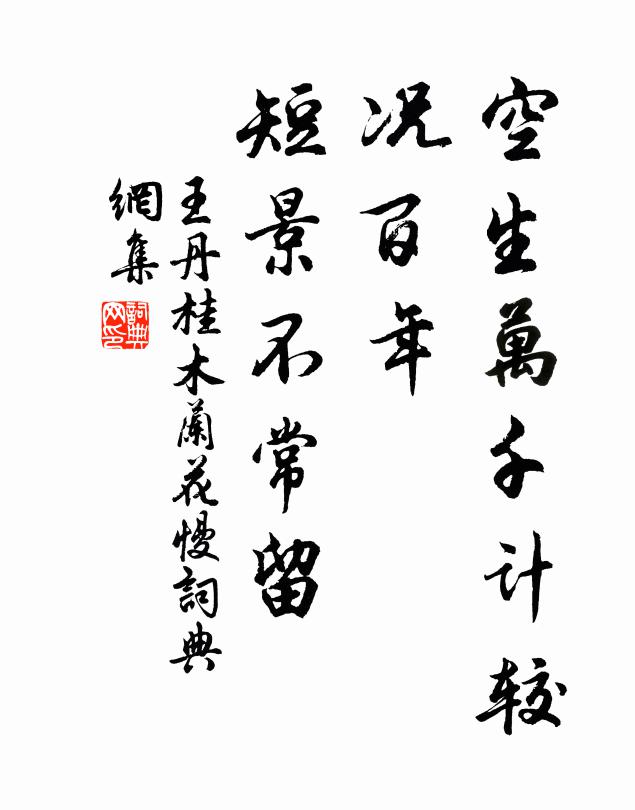 空生萬千计较
况百年
短景不常留
王丹桂木蘭花慢詞典
網集
詞典
网印